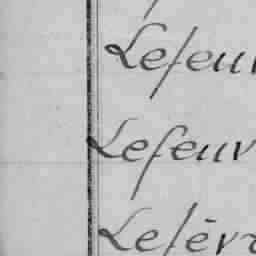 Lefeuv
Lefeuv
Lefèvr